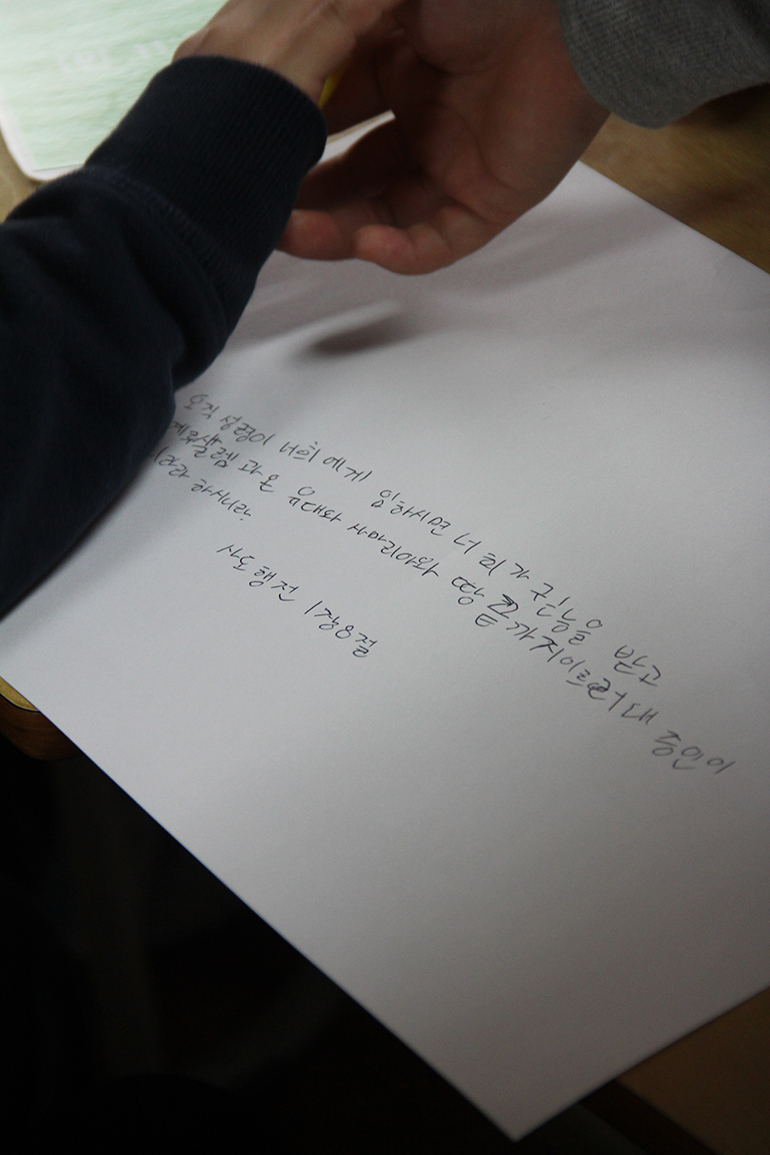 오직 성령이 너희에게 임하시면 너희가 권능을 받고
예루살렘과 온 유대와 사마리아와 땅 끝까지 이르러 내 증인이
되리라 하시니라.
사도행전 1장8절